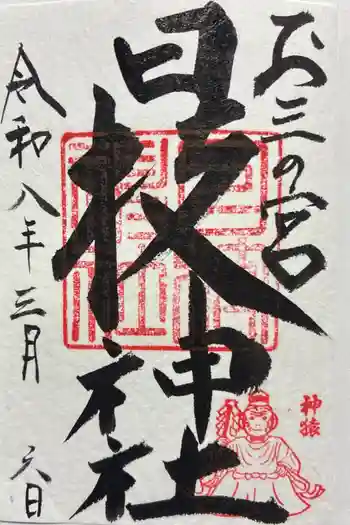 お三の宮
日枝神社
令和八年三月
六日
神猿